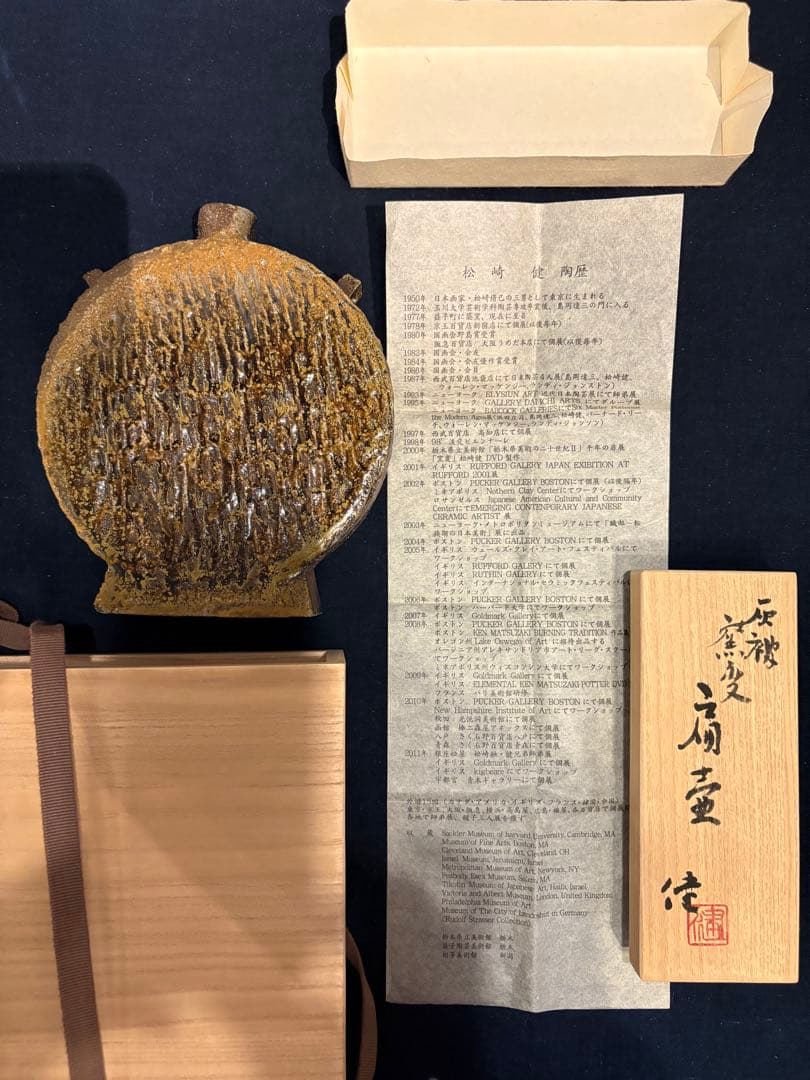 松崎 健 陶歴
1950年 日本画家・松崎修己の三男として東京に生まれる
1972年 玉川大学芸術学科陶芸専攻卒業後、島岡達三の門に入る
1977年 益子町に築窯、現在に至る
1978年 京王百貨店新宿店にて個展(以後毎年)
1980年 国画会野島賞受賞
阪急百貨店 大阪うめだ本店にて個展(以後毎年)
1982年 国画会・会友
1984年 国画会・会友優作賞受賞
1986年 国画会・会員
1987年 西武百貨店池袋店にて日米陶芸4人展(島岡達三、松崎健、
ウォーレン・マッケンジー、ランディ・ジョンストン)
1993年 ニューヨーク、ELYSIUN ART 近代日本陶芸展にて師弟展
1995年 ニューヨーク GALLERY DAI ICHI ARTS にてグループ展
ニューヨーク BABCOCK GALLERIESにてSix Master Potters
the Modern Age展(浜田庄司、島岡達三、松崎健、バーナード・リー
チ、ウォーレン・マッケンジー、ランディ・ジョンソン)
1997年 西武百貨店 高知店にて個展
1998年 98' 淡交ビエンナーレ
2000年 栃木県立美術館「栃木県美術の二十世紀Ⅱ」千年の扉展
「窯貴」松崎健 DVD 製作
2001年 イギリス RUFFORD GALERY JAPAN EXIBITION AT
RUFFORD 2001展
2002年 ボストン PUCKER GALLERY BOSTONにて個展 (以後隔年)
ミネアポリス Nothern Clay Centerにてワークショップ
ロサンゼルス Japanese American Cultural and Community
CenterにてEMERGING CONTENPORARY JAPANESE
CERAMIC ARTIST 展
2003年 ニューヨーク・メトロポリタンミュージアムにて「織部-転
換期の日本美術」展に出品
2004年 ボストン PUCKER GALLERY BOSTONにて個展
2005年 イギリス ウェールズ・クレイ・アート・フェスティバルにて
ワークショップ
イギリス RUFFORD GALERY にて個展
イギリス RUTHIN GALERY にて個展
イギリス インターナショナル・セラミックフェスティバルに
ワークショップ
2006年 ボストン PUCKER GALLERY BOSTONにて個展
ボストン ハーバード大学にてワークショップ
2007年 イギリス Goldmark Galleryにて個展
2008年 ボストン PUCKER GALLERY BOSTON にて個展
ボストン KEN MATSUZAKI BURNING TRADITION 作品集
オレゴン州 Lake Oswego of Art に招待出品する
バージニア州アレキサンドリアホアート・リーグ・スクール
てワークショップ
ミネアポリス州ウィスコンシン大学にてワークショップ
2009年 イギリス Goldmark Gallery にて個展
イギリス ELEMENTAL KEN MATSUZAKI POTTER DVD
フランス パリ美術館研修
2010年 ボストン PUCKER GALLERY BOSTON にて個展
New Hampshire Institute of Art にてワークショップ
秋田 光悦洞美術館にて個展
函館 棒二森屋アネックスにて個展
八戸 さくら野百貨店八戸にて個展
青森 さくら野百貨店青森にて個展
2011年 銀座松屋 松崎融・健兄弟師弟展
イギリス Goldmark Gallery にて個展
イギリス kigbeare にてワークショップ
宇都宮 青木ギャラリーにて個展
外遊15回 (カナダ・アメリカ・イギリス・フランス・韓国・中国)
東京・京王、大阪・阪急、横浜・高島屋、広島・福屋、各百貨店で個展
各地で師弟展、親子三人展を催す
収 蔵 Sackler Museum of harvard University, Cambridge, MA
Museum of Fine Arts, Boston, MA
Cleveland Museum of Art, Cleveland, OH
Israel Museum, Jerusalem, Israel
Metropolitan Museum of Art, Newyork, NY
Peabody Esex Museum, Salem, MA
Tikotin Museum of Japanese Art, Haifa, Israel
Victoria and Albert Museum, London, United Kingdom
Philadelphia Museum of Art
Museum of The City of Landshut in Germany
(Rudolf Strasser Collection)
栃木県立美術館 栃木
益子陶芸美術館 栃木
敦井美術館 新潟
灰被
窯変
扁壷
健
健